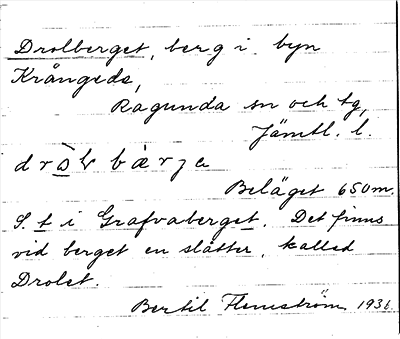 Drolberget, berg i byn
Krångede,
Ragunda sn och tg,
Jämtl. l.
Beläget 650 m.
S. t i Grafvaberget. Det finns
vid berget en slåtter, kallad
Drolet.
Bertil Flemström 1936.